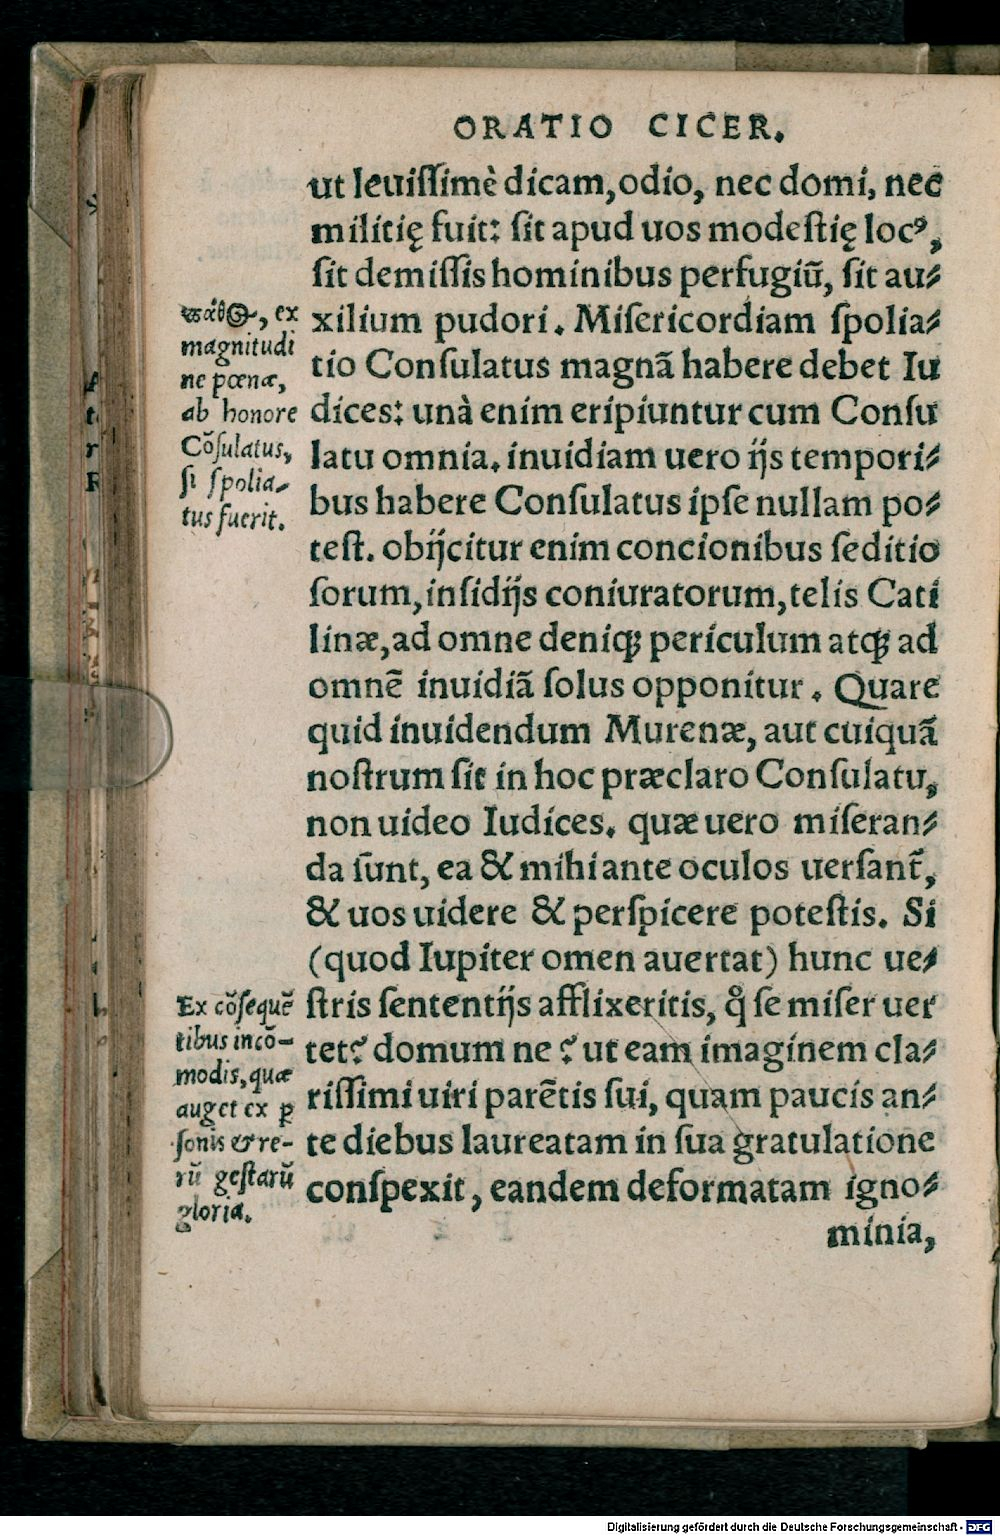 ORATIO CICER.
ut leuiſſimè dicam, odio, nec domi, nec
militię fuit: ſit apud uos modeſtię locꝰ,
ſit demiſſis hominibus perfugiũ, ſit au⸗
xilium pudori. Miſericordiam ſpolia⸗
tio Conſulatus magnã habere debet Iu
dices: unà enim eripiuntur cum Conſu
latu omnia. inuidiam uero ijs tempori⸗
bus habere Conſulatus ipſe nullam po⸗
teſt. obijcitur enim concionibus ſeditio
ſorum, inſidijs coniuratorum, telis Cati
linæ, ad omne deniqꝫ periculum atqꝫ ad
omnẽ inuidiã ſolus opponitur. Quare
quid inuidendum Murenæ, aut cuiquã
noſtrum ſit in hoc præclaro Conſulatu,
non uideo Iudices. quæ uero miſeran⸗
da ſunt, ea & mihi ante oculos uerſant̃,
& uos uidere & perſpicere poteſtis. Si
(quod Iupiter omen auertat) hunc ue⸗
ſtris ſententijs afflixeritis, qͦ ſe miſer uer
tet? domum ne? ut eam imaginem cla⸗
riſſimi uiri parẽtis ſui, quam paucis an⸗
te diebus laureatam in ſua gratulatione
conſpexit, eandem deformatam igno⸗
minia,
πάθος, ex
magnitudi
ne pœnæ,
ab honore
Cõſulatus,
ſi ſpolia⸗
tus fuerit.
Ex cõſequẽ
tibus incõ-
modis, quæ
auget ex ꝑ
ſonis & re-
rũ geſtarũ
gloria.
Digitalisierung gefördert durch die Deutsche Forschungsgemeinschaft - DFG